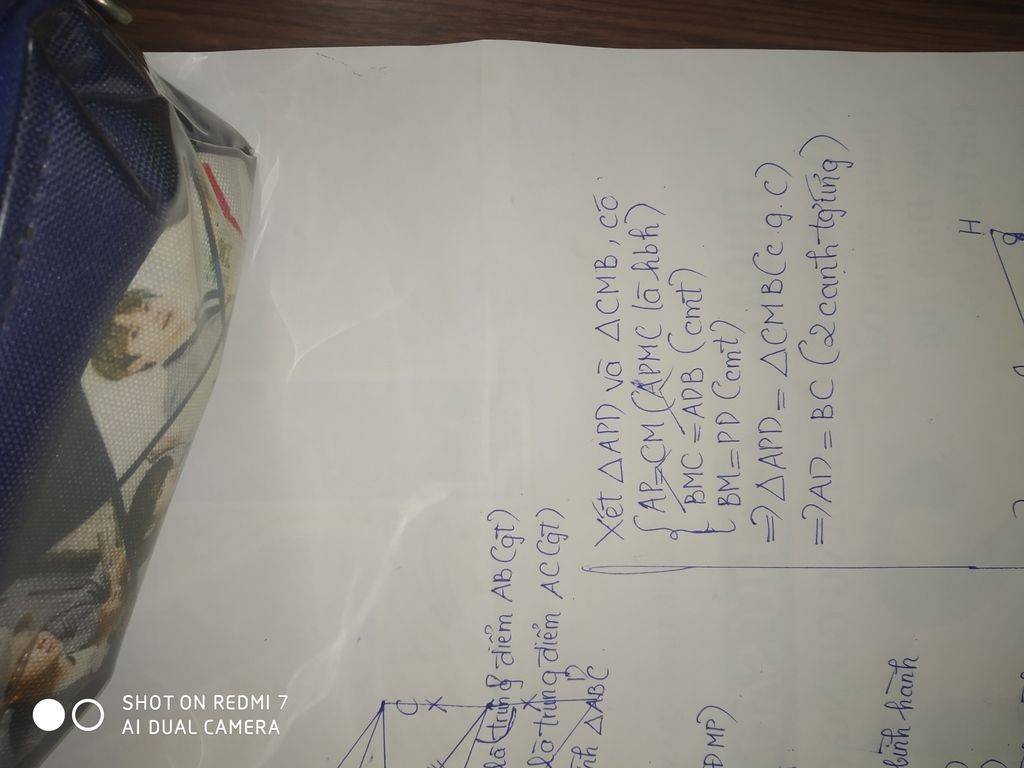 Xét △APD và △CMB, có
AP=CM (APMC là hbh)
BMC = ADB (cmt)
BM=PD (cmt)
=> △APD = △CMB (c.g.c)
=> AD = BC (2 cạnh tg ứng)
C
là trung điểm AB (gt)
là trung điểm AC (gt)
△ABC
ĐMP)
bình hành
H
SHOT ON REDMI 7
AI DUAL CAMERA